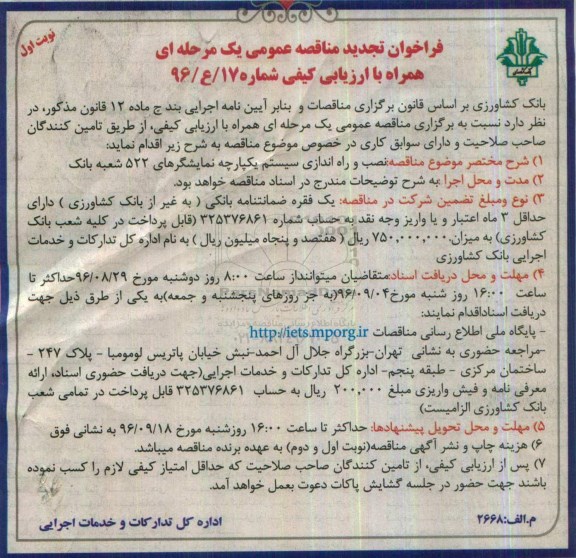 نوبت اول
فراخوان تجدید مناقصه عمومی یک مرحله ای
همراه با ارزیابی کیفی شماره ۱۷/ع/۹۶
بانک کشاورزی بر اساس قانون برگزاری مناقصات و بنابر آیین نامه اجرایی بند ج ماده ۱۲ قانون مذکور، در
نظر دارد نسبت به برگزاری مناقصه عمومی یک مرحله ای همراه با ارزیابی کیفی، از طریق تامین کنندگان
صاحب صلاحیت و دارای سوابق کاری در خصوص موضوع مناقصه به شرح زیر اقدام نماید:
۱) شرح مختصر موضوع مناقصه:نصب و راه اندازی سیستم یکپارچه نمایشگرهای ۵۲۲ شعبه بانک
۲) مدت و محل اجرا :به شرح توضیحات مندرج در اسناد مناقصه خواهد بود.
۳) نوع ومبلغ تضمین شرکت در مناقصه: یک فقره ضمانتنامه بانکی ( به غیر از بانک کشاورزی ) دارای
حداقل ۳ ماه اعتبار و یا واریز وجه نقد به حساب شماره ۳۲۵۳۷۶۸۶۱ (قابل پرداخت در کلیه شعب بانک
کشاورزی) به میزان.۷۵۰,۰۰۰,۰۰۰ ریال ( هفتصد و پنجاه میلیون ریال ) به نام اداره کل تدارکات و خدمات
اجرایی بانک کشاورزی
۴) مهلت و محل دریافت اسناد:متقاضیان میتواننداز ساعت ۸:۰۰ روز دوشنبه مورخ ۹۶/۰۸/۲۹حداکثر تا
ساعت ۱۶:۰۰ روز شنبه مورخ۹۶/۰۹/۰۴(به جز روزهای پنجشنبه و جمعه)به یکی از طرق ذیل جهت
دریافت اسناداقدام نمایند:
- پایگاه ملی اطلاع رسانی مناقصات http://iets.mporg.ir
-مراجعه حضوری به نشانی تهران-بزرگراه جلال آل احمد-نبش خیابان پاتریس لومومبا - پلاک ۲۴۷ -
ساختمان مرکزی - طبقه پنجم- اداره کل تدارکات و خدمات اجرایی(جهت دریافت حضوری اسناد، ارائه
معرفی نامه و فیش واریزی مبلغ ۲۰۰,۰۰۰ ریال به حساب ۳۲۵۳۷۶۸۶۱ قابل پرداخت در تمامی شعب
بانک کشاورزی الزامیست)
۵) مهلت و محل تحویل پیشنهادها: حداکثر تا ساعت ۱۶:۰۰ روزشنبه مورخ ۹۶/۰۹/۱۸ به نشانی فوق
۶) هزینه چاپ و نشر آگهی مناقصه(نوبت اول و دوم) به عهده برنده مناقصه میباشد.
۷) پس از ارزیابی کیفی، از تامین کنندگان صاحب صلاحیت که حداقل امتیاز کیفی لازم را کسب نموده
باشند جهت حضور در جلسه گشایش پاکات دعوت بعمل خواهد آمد.
م.الف:۲۶۶۸
اداره کل تدارکات و خدمات اجرایی